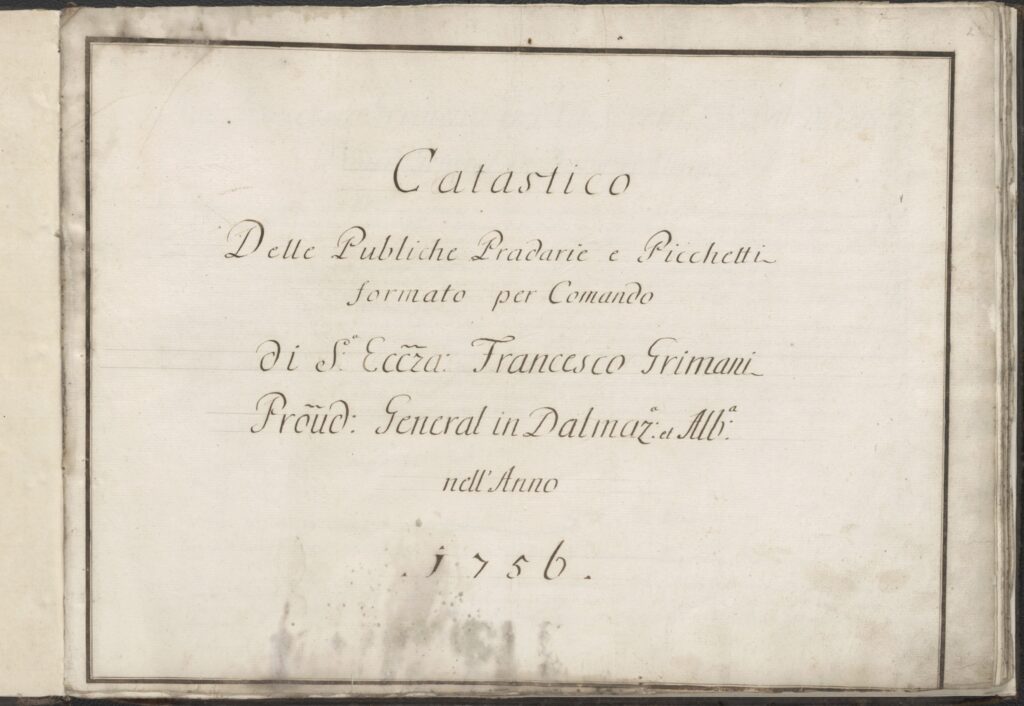 Catastico
Delle Publiche Pradarie e Picchetti
formato per Comando
di S.ª Ecc̃za: Francesco Grimani
Proṽd: General in Dalmaz:ª et Alb:ª
nell'Anno
. 1756 .